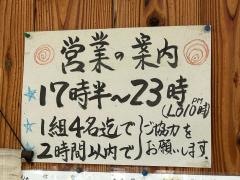 営業の案内
17時半～23時
(L.O PM10時)
1組4名迄で
2時間以内で
ご協力を
お願いします